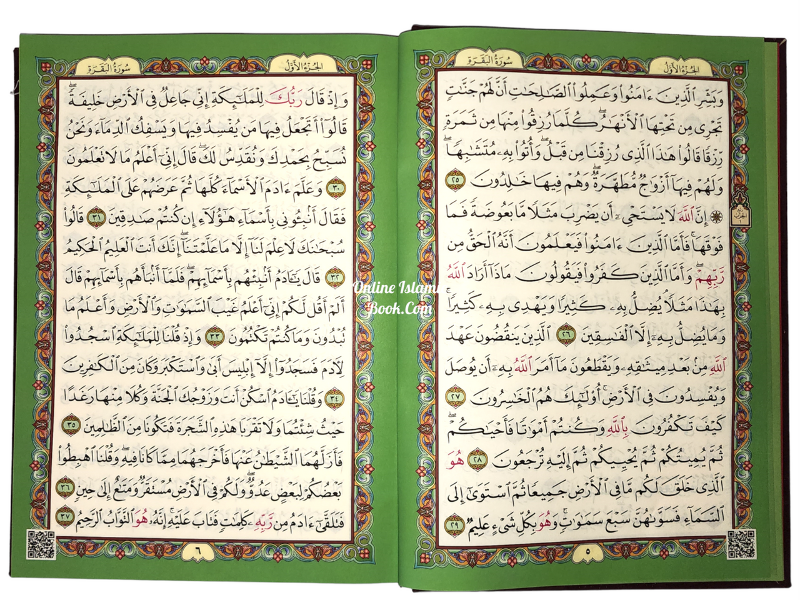 سُورَةُ البَقَرَةِ
الجُزْءُ الأَوَّلُ
وَبَشِّرِ ٱلَّذِينَ ءَامَنُوا۟ وَعَمِلُوا۟ ٱلصَّـٰلِحَـٰتِ أَنَّ لَهُمْ جَنَّـٰتٍ
تَجْرِى مِن تَحْتِهَا ٱلْأَنْهَـٰرُ ۖ كُلَّمَا رُزِقُوا۟ مِنْهَا مِن ثَمَرَةٍ
رِّزْقًا قَالُوا۟ هَـٰذَا ٱلَّذِى رُزِقْنَا مِن قَبْلُ ۖ وَأُتُوا۟ بِهِۦ مُتَشَـٰبِهًا ۖ
وَلَهُمْ فِيهَآ أَزْوَٰجٌ مُّطَهَّرَةٌ ۖ وَهُمْ فِيهَا خَـٰلِدُونَ ٢٥
۞ إِنَّ ٱللَّهَ لَا يَسْتَحْىِۦٓ أَن يَضْرِبَ مَثَلًا مَّا بَعُوضَةً فَمَا
فَوْقَهَا ۚ فَأَمَّا ٱلَّذِينَ ءَامَنُوا۟ فَيَعْلَمُونَ أَنَّهُ ٱلْحَقُّ مِن
رَّبِّهِمْ ۖ وَأَمَّا ٱلَّذِينَ كَفَرُوا۟ فَيَقُولُونَ مَاذَآ أَرَادَ ٱللَّهُ
بِهَـٰذَا مَثَلًا ۘ يُضِلُّ بِهِۦ كَثِيرًا وَيَهْدِى بِهِۦ كَثِيرًا ۚ
وَمَا يُضِلُّ بِهِۦٓ إِلَّا ٱلْفَـٰسِقِينَ ٢٦ ٱلَّذِينَ يَنقُضُونَ عَهْدَ
ٱللَّهِ مِنۢ بَعْدِ مِيثَـٰقِهِۦ وَيَقْطَعُونَ مَآ أَمَرَ ٱللَّهُ بِهِۦٓ أَن يُوصَلَ
وَيُفْسِدُونَ فِى ٱلْأَرْضِ ۚ أُو۟لَـٰٓئِكَ هُمُ ٱلْخَـٰسِرُونَ ٢٧
كَيْفَ تَكْفُرُونَ بِٱللَّهِ وَكُنتُمْ أَمْوَٰتًا فَأَحْيَـٰكُمْ ۖ
ثُمَّ يُمِيتُكُمْ ثُمَّ يُحْيِيكُمْ ثُمَّ إِلَيْهِ تُرْجَعُونَ ٢٨ هُوَ
ٱلَّذِى خَلَقَ لَكُم مَّا فِى ٱلْأَرْضِ جَمِيعًا ثُمَّ ٱسْتَوَىٰٓ إِلَى
ٱلسَّمَآءِ فَسَوَّىٰهُنَّ سَبْعَ سَمَـٰوَٰتٍ ۚ وَهُوَ بِكُلِّ شَىْءٍ عَلِيمٌ ٢٩
٥
سُورَةُ البَقَرَةِ
الجُزْءُ الأَوَّلُ
وَإِذْ قَالَ رَبُّكَ لِلْمَلَـٰٓئِكَةِ إِنِّى جَاعِلٌ فِى ٱلْأَرْضِ خَلِيفَةً ۖ
قَالُوٓا۟ أَتَجْعَلُ فِيهَا مَن يُفْسِدُ فِيهَا وَيَسْفِكُ ٱلدِّمَآءَ وَنَحْنُ
نُسَبِّحُ بِحَمْدِكَ وَنُقَدِّسُ لَكَ ۖ قَالَ إِنِّىٓ أَعْلَمُ مَا لَا تَعْلَمُونَ
٣٠ وَعَلَّمَ ءَادَمَ ٱلْأَسْمَآءَ كُلَّهَا ثُمَّ عَرَضَهُمْ عَلَى ٱلْمَلَـٰٓئِكَةِ
فَقَالَ أَنۢبِـُٔونِى بِأَسْمَآءِ هَـٰٓؤُلَآءِ إِن كُنتُمْ صَـٰدِقِينَ ٣١ قَالُوا۟
سُبْحَـٰنَكَ لَا عِلْمَ لَنَآ إِلَّا مَا عَلَّمْتَنَآ ۖ إِنَّكَ أَنتَ ٱلْعَلِيمُ ٱلْحَكِيمُ
٣٢ قَالَ يَـٰٓـَٔادَمُ أَنۢبِئْهُم بِأَسْمَآئِهِمْ ۖ فَلَمَّآ أَنۢبَأَهُم بِأَسْمَآئِهِمْ قَالَ
أَلَمْ أَقُل لَّكُمْ إِنِّىٓ أَعْلَمُ غَيْبَ ٱلسَّمَـٰوَٰتِ وَٱلْأَرْضِ وَأَعْلَمُ مَا
تُبْدُونَ وَمَا كُنتُمْ تَكْتُمُونَ ٣٣ وَإِذْ قُلْنَا لِلْمَلَـٰٓئِكَةِ ٱسْجُدُوا۟
لِـَٔادَمَ فَسَجَدُوٓا۟ إِلَّآ إِبْلِيسَ أَبَىٰ وَٱسْتَكْبَرَ وَكَانَ مِنَ ٱلْكَـٰفِرِينَ
٣٤ وَقُلْنَا يَـٰٓـَٔادَمُ ٱسْكُنْ أَنتَ وَزَوْجُكَ ٱلْجَنَّةَ وَكُلَا مِنْهَا رَغَدًا
حَيْثُ شِئْتُمَا وَلَا تَقْرَبَا هَـٰذِهِ ٱلشَّجَرَةَ فَتَكُونَا مِنَ ٱلظَّـٰلِمِينَ ٣٥
فَأَزَلَّهُمَا ٱلشَّيْطَـٰنُ عَنْهَا فَأَخْرَجَهُمَا مِمَّا كَانَا فِيهِ ۖ وَقُلْنَا ٱهْبِطُوا۟
بَعْضُكُمْ لِبَعْضٍ عَدُوٌّ ۖ وَلَكُمْ فِى ٱلْأَرْضِ مُسْتَقَرٌّ وَمَتَـٰعٌ إِلَىٰ حِينٍ ٣٦
فَتَلَقَّىٰٓ ءَادَمُ مِن رَّبِّهِۦ كَلِمَـٰتٍ فَتَابَ عَلَيْهِ ۚ إِنَّهُۥ هُوَ ٱلتَّوَّابُ ٱلرَّحِيمُ ٣٧
٦
Online Islamic
Book.Com